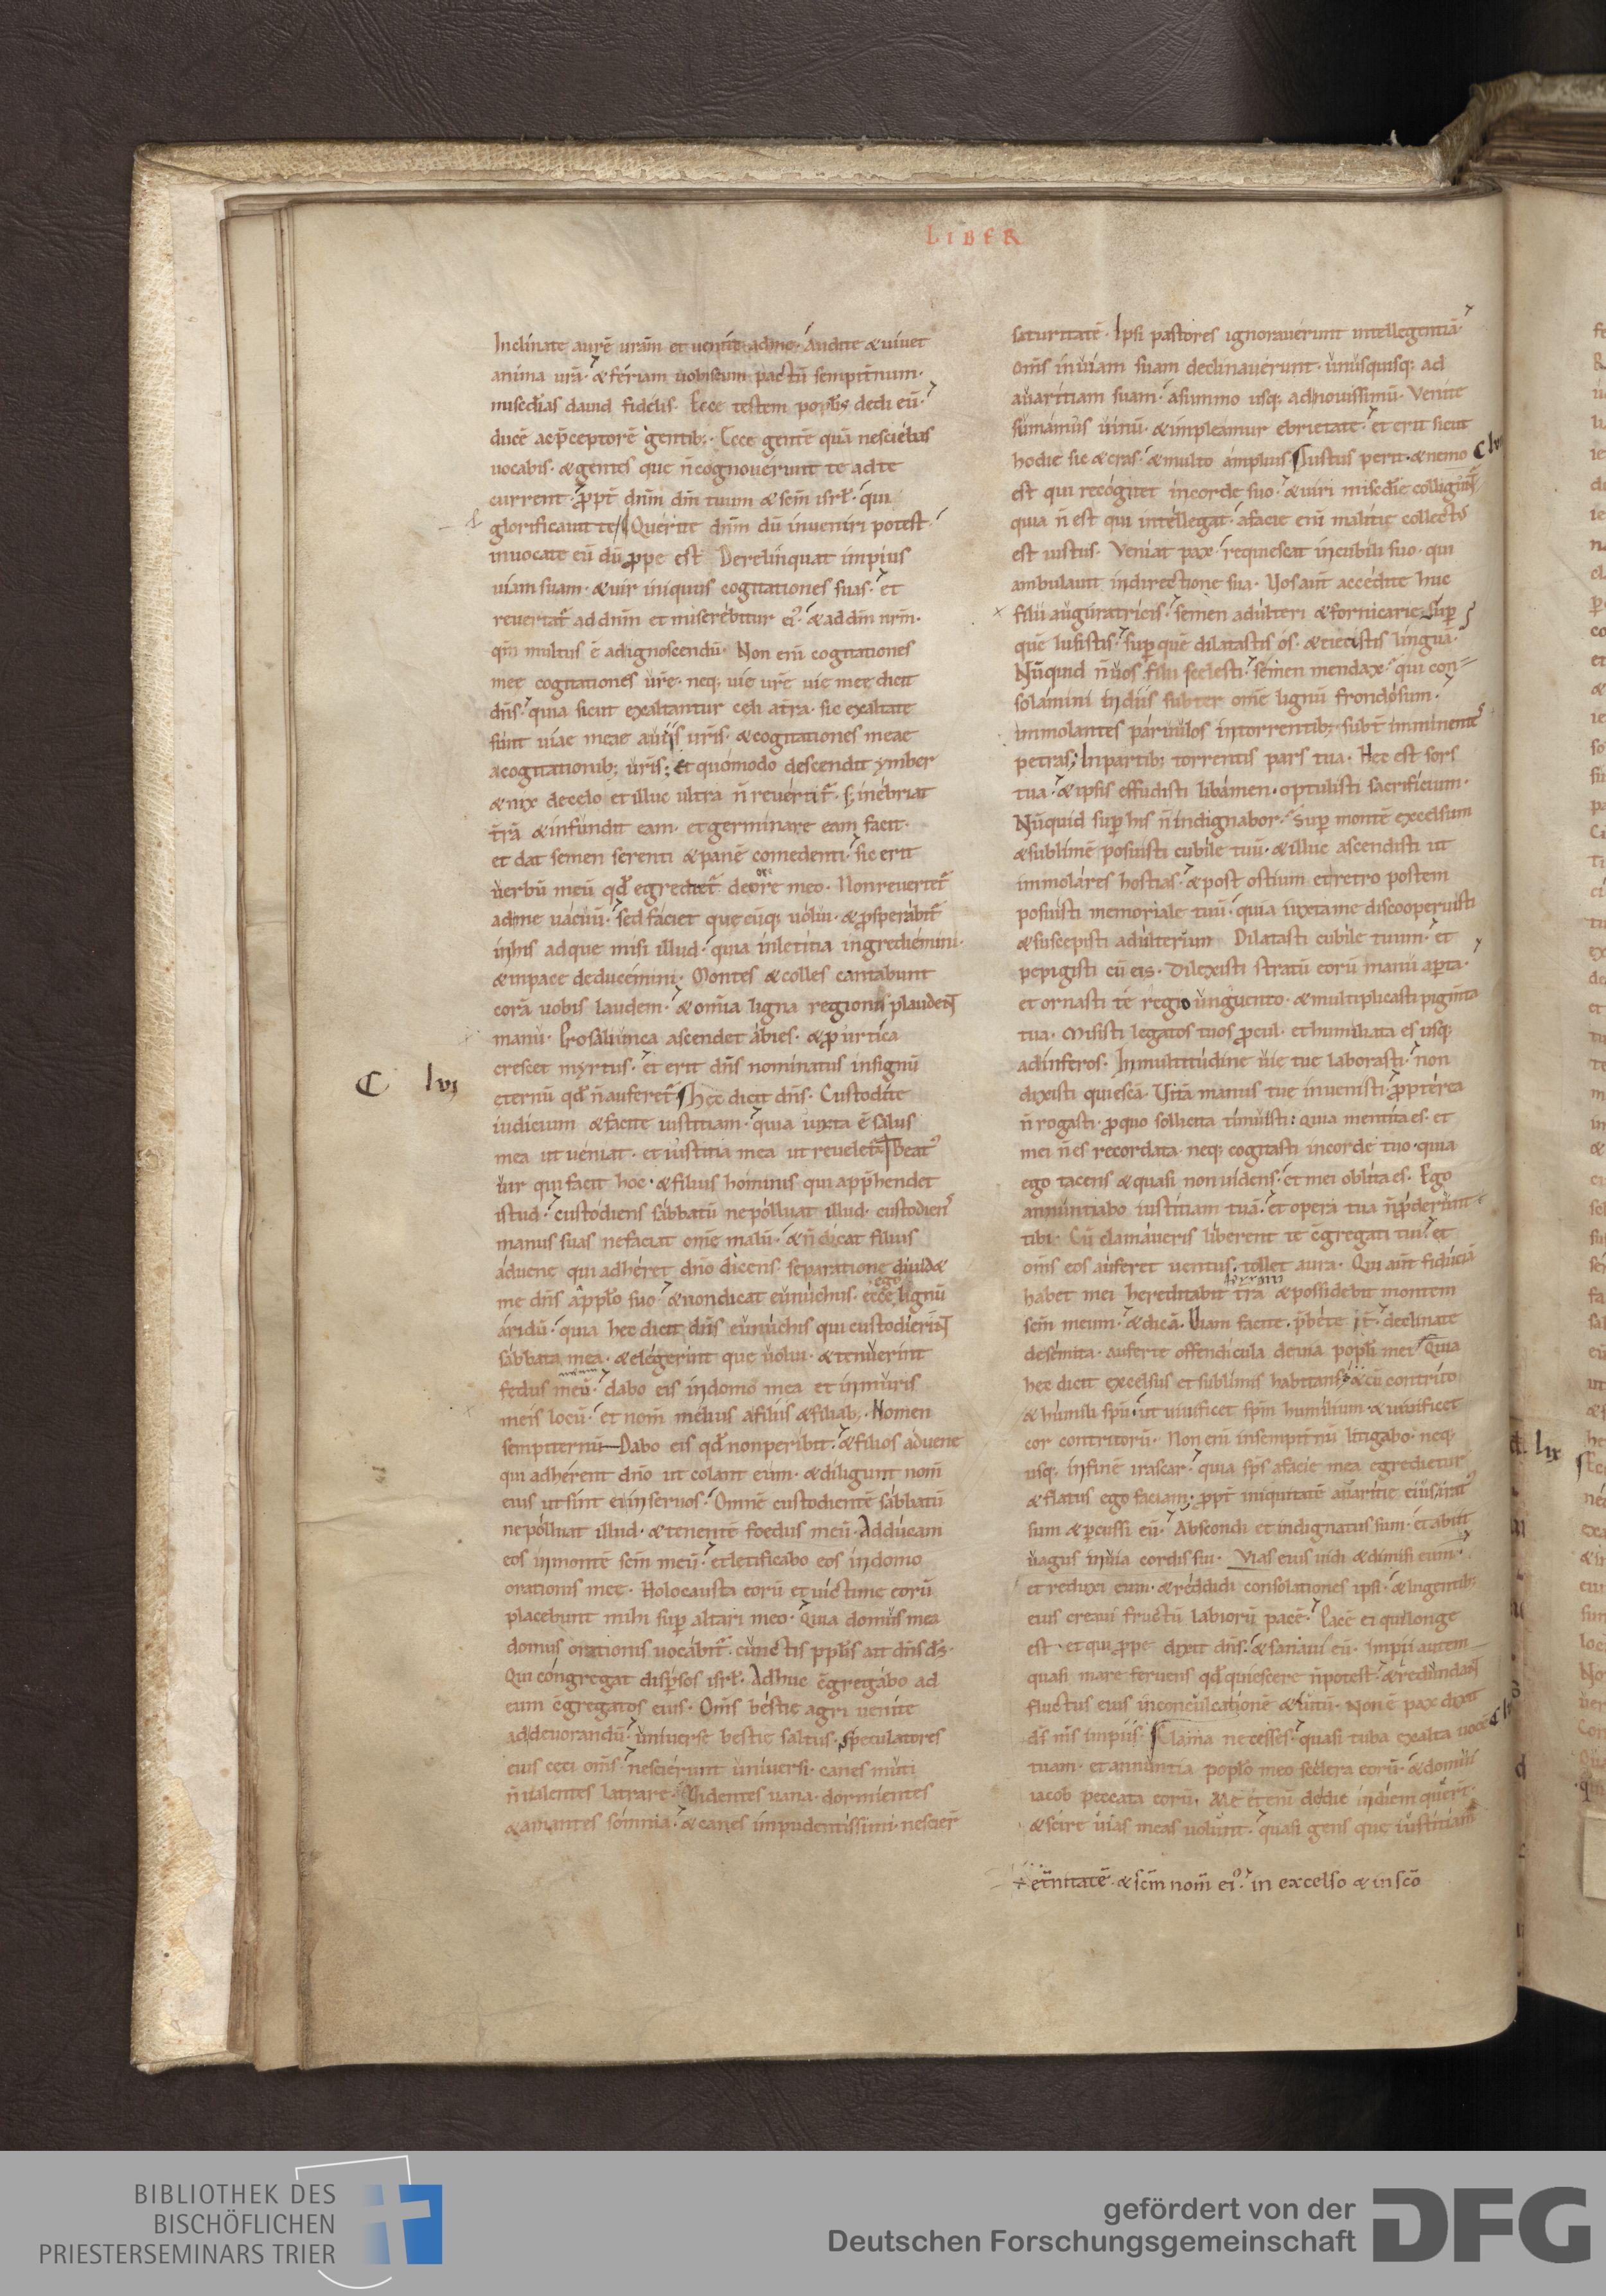 LIBER
Inclinate aurē urām et uenite adme. Audite & uiuet
anima urā. & feriam uobiscum pactū sempit̄num.
misedias dauid fideles. Ecce testem poplis dedi eū.
ducē acp̄ceptorē gentib;. Ecce gentē quā nesciebas
uocabis. & gentes que ñ cognouerunt te adte
current. ꝓpt̄ dn̄m dm̄ tuum & sc̄m isrl̄. qui
glorificauit te. Querite dn̄m dū inueniri potest.
inuocate eū dū ꝓpe est. Derelinquat impius
uiam suam. & uir iniquus cogitationes suas. et
reuertat̄ ad dn̄m et miserebitur ei. & ad dm̄ nr̄m.
qm̄ multus ē adignoscendū. Non eni cogitationes
mee cogitationes ur̄e. neq; uie ur̄e uie mee dicit
dn̄s. quia sicut exaltantur celi at̄ra. sic exaltate
sunt uiae meae auiis ur̄is. & cogitationes meae
acogitationib; ur̄is. Et quomodo descendit ymber
& nix decelo et illuc ultra ñ reuertit̄. s; inebriat
t̄rā & infundit eam. et germinare eam facit.
et dat semen serenti & panē comedenti. sic erit
uerbū meū qd̄ egrediet̄ deore meo. Non reuertet̄
adme uacuū. sed faciet que cūq; uolui. & ꝓsperabit̄
inhis adque misi illud. quia inletitia ingrediemini.
& inpace deducemini. Montes & colles cantabunt
corā uobis laudem. & omīa ligna regionis plaudent
manu. Pro saliunca ascendet abies. & ꝓ urtica
crescet myrtus. et erit dn̄s nominatus insignū
eternū qd̄ ñ auferet̄. Hec dicit dn̄s. Custodite
C lvj
iudicium & facite iustitiam. quia iuxta ē salus
mea ut ueniat. et iustitia mea ut reuelet̄. Beat᾿
uir qui facit hoc. & filius hominis qui app̄hendet
istud. custodiens sabbatū ne polluat illud. custodien᾿
manus suas ne faciat om̄e malū. & ñ dicat filius
aduene qui adheret dn̄o dicens. separatione diuid&
me dn̄s a pplo suo. & non dicat eunuchus. ecce ego lignū
aridū. quia hec dicit dn̄s eunuchis qui custodierint
sabbata mea. & elegerint que uolui. & tenuerint
fedus meū. dabo eis indomo mea et inmuris
meis locū. et nom̄ melius afiliis & filiab;. Nomen
sempiternū Dabo eis qd̄ non peribit. & filios aduene
qui adherent dn̄o ut colant eum. & diligunt nom̄
eius ut sint ei in seruos. Omnē custodientē sabbatū
ne polluat illud. & tenentē foedus meū. Adducam
eos inmontē sc̄m meū. et letificabo eos indomo
orationis mee. Holocausta eorū et uictime eorū
placebunt mihi sup̄ altari meo. Quia domus mea
domus orationis uocabit̄. cunctis pplis ait dn̄s ds̄.
Qui congregat disp̄sos isrl̄. Adhuc c̄gregabo ad
eum c̄gregatos eius. Om̄s bestie agri uenite
addeuorandū. uniuerse bestie saltus. Speculatores
eius ceci om̄s. nescierunt uniuersi. canes muti
ñ ualentes latrare. Uidentes uana. dormientes
& amantes somnia. & canes impudentissimi. nescier̄
saturitatē. Ipsi pastores ignorauerunt intellegentiā.
om̄s in uiam suam declinauerunt. unusquisq; ad
auaritiam suam. asummo usq; ad nouissimū. Venite
sumamus uinū. & impleamur ebrietate. et erit sicut
hodie sic & cras. & multo amplius. Iustus perit. & nemo
est qui recogitet incorde suo. & uiri misedie colligunt̄
quia ñ est qui intellegat. afacie eni malitie collect᾿
est iustus. Veniat pax. requiescat incubili suo. qui
ambulauit indirectione sua. Vos aut̄ accedite huc
filii auguratricis. semen adulteri & fornicarie. Sup̄
quē lusistis. sup̄ quē dilatastis os. & eiecistis linguā.
Nūquid ñ uos filii scelesti. semen mendax. qui con=
solamini indiis subter om̄e lignū frondosum.
immolantes paruulos intorrentib; subt̄ imminentes
petras. Inpartib; torrentis pars tua. Hec est sors
tua. & ipsis effudisti libamen. optulisti sacrificium.
Nūquid sup̄ his ñ indignabor. Sup̄ montē excelsum
& sublimē posuisti cubile tuū. & illuc ascendisti ut
immolares hostias. & post ostium et retro postem
posuisti memoriale tuū. quia iuxta me discooperuisti
& suscepisti adulterium Dilatasti cubile tuum. et
pepigisti cū eis. Dilexisti stratū eorū manu ap̄ta.
et ornasti te regio unguento. & multiplicasti pigm̄ta
tua. Misisti legatos tuos ꝓcul. et humiliata es usq;
adinferos. Inmultitudine uie tue laborasti. non
dixisti quiescā. Vitā manus tue inuenisti. ꝓpterea
ñ rogasti. ꝓ quo sollicita timuisti: quia mentita es. et
mei ñ es recordata. neq; cogitasti incorde tuo. quia
ego tacens & quasi non uidens. et mei oblita es. Ego
annuntiabo iustitiam tuā. et opera tua ñ ꝓderunt
tibi. Cū clamaueris liberent te c̄gregati tui. et
om̄s eos auferet uentus. tollet aura. Qui aut̄ fiduciā
habet mei hereditabit t̄rā & possidebit montem
sc̄m meum. & dicā. Viam facite. p̄bete it̄. declinate
desemita. auferte offendicula deuia popli mei. Quia
hec dicit excelsus et sublimis habitans & cū contrito
& humili spū. ut uiuificet spm̄ humilium. & uiuificet
cor contritorū. Non eni insempit̄nū litigabo. neq;
usq; infinē irascar. quia sps̄ afacie mea egredietur
& flatus ego faciam. ꝓpt̄ iniquitatē auaritie eius irat᾿
sum & p̄cussi eū. Abscondi et indignatus sum. et abiit
uagus inuia cordis sui. Vias eius uidi & dimisi eum.
et reduxi eum. & reddidi consolationes ipsi. & lugentib;
eius creaui fructū labiorū pacē. Pacē ei qui longe
est. et qui ꝓpe dixit dn̄s. & sanaui eū. Impii autem
quasi mare feruens qd̄ quiescere ñ potest. & redundant
fluctus eius inconculcationē & lutū. Non ē pax dixit
ds̄ ms̄ impiis. Clama ne cesses. quasi tuba exalta uocē
tuam. et annuntia poplo meo scelera eorū. & domui
iacob peccata eorū. Me eteni dedie indiem querūt.
& scire uias meas uolunt. quasi gens que iustitiam
et̄nitatē. & sc̄m nom̄ ei᾿. in excelso & in sc̄o
lix
BIBLIOTHEK DES
BISCHÖFLICHEN
PRIESTERSEMINARS TRIER
gefördert von der
Deutschen Forschungsgemeinschaft
DFG